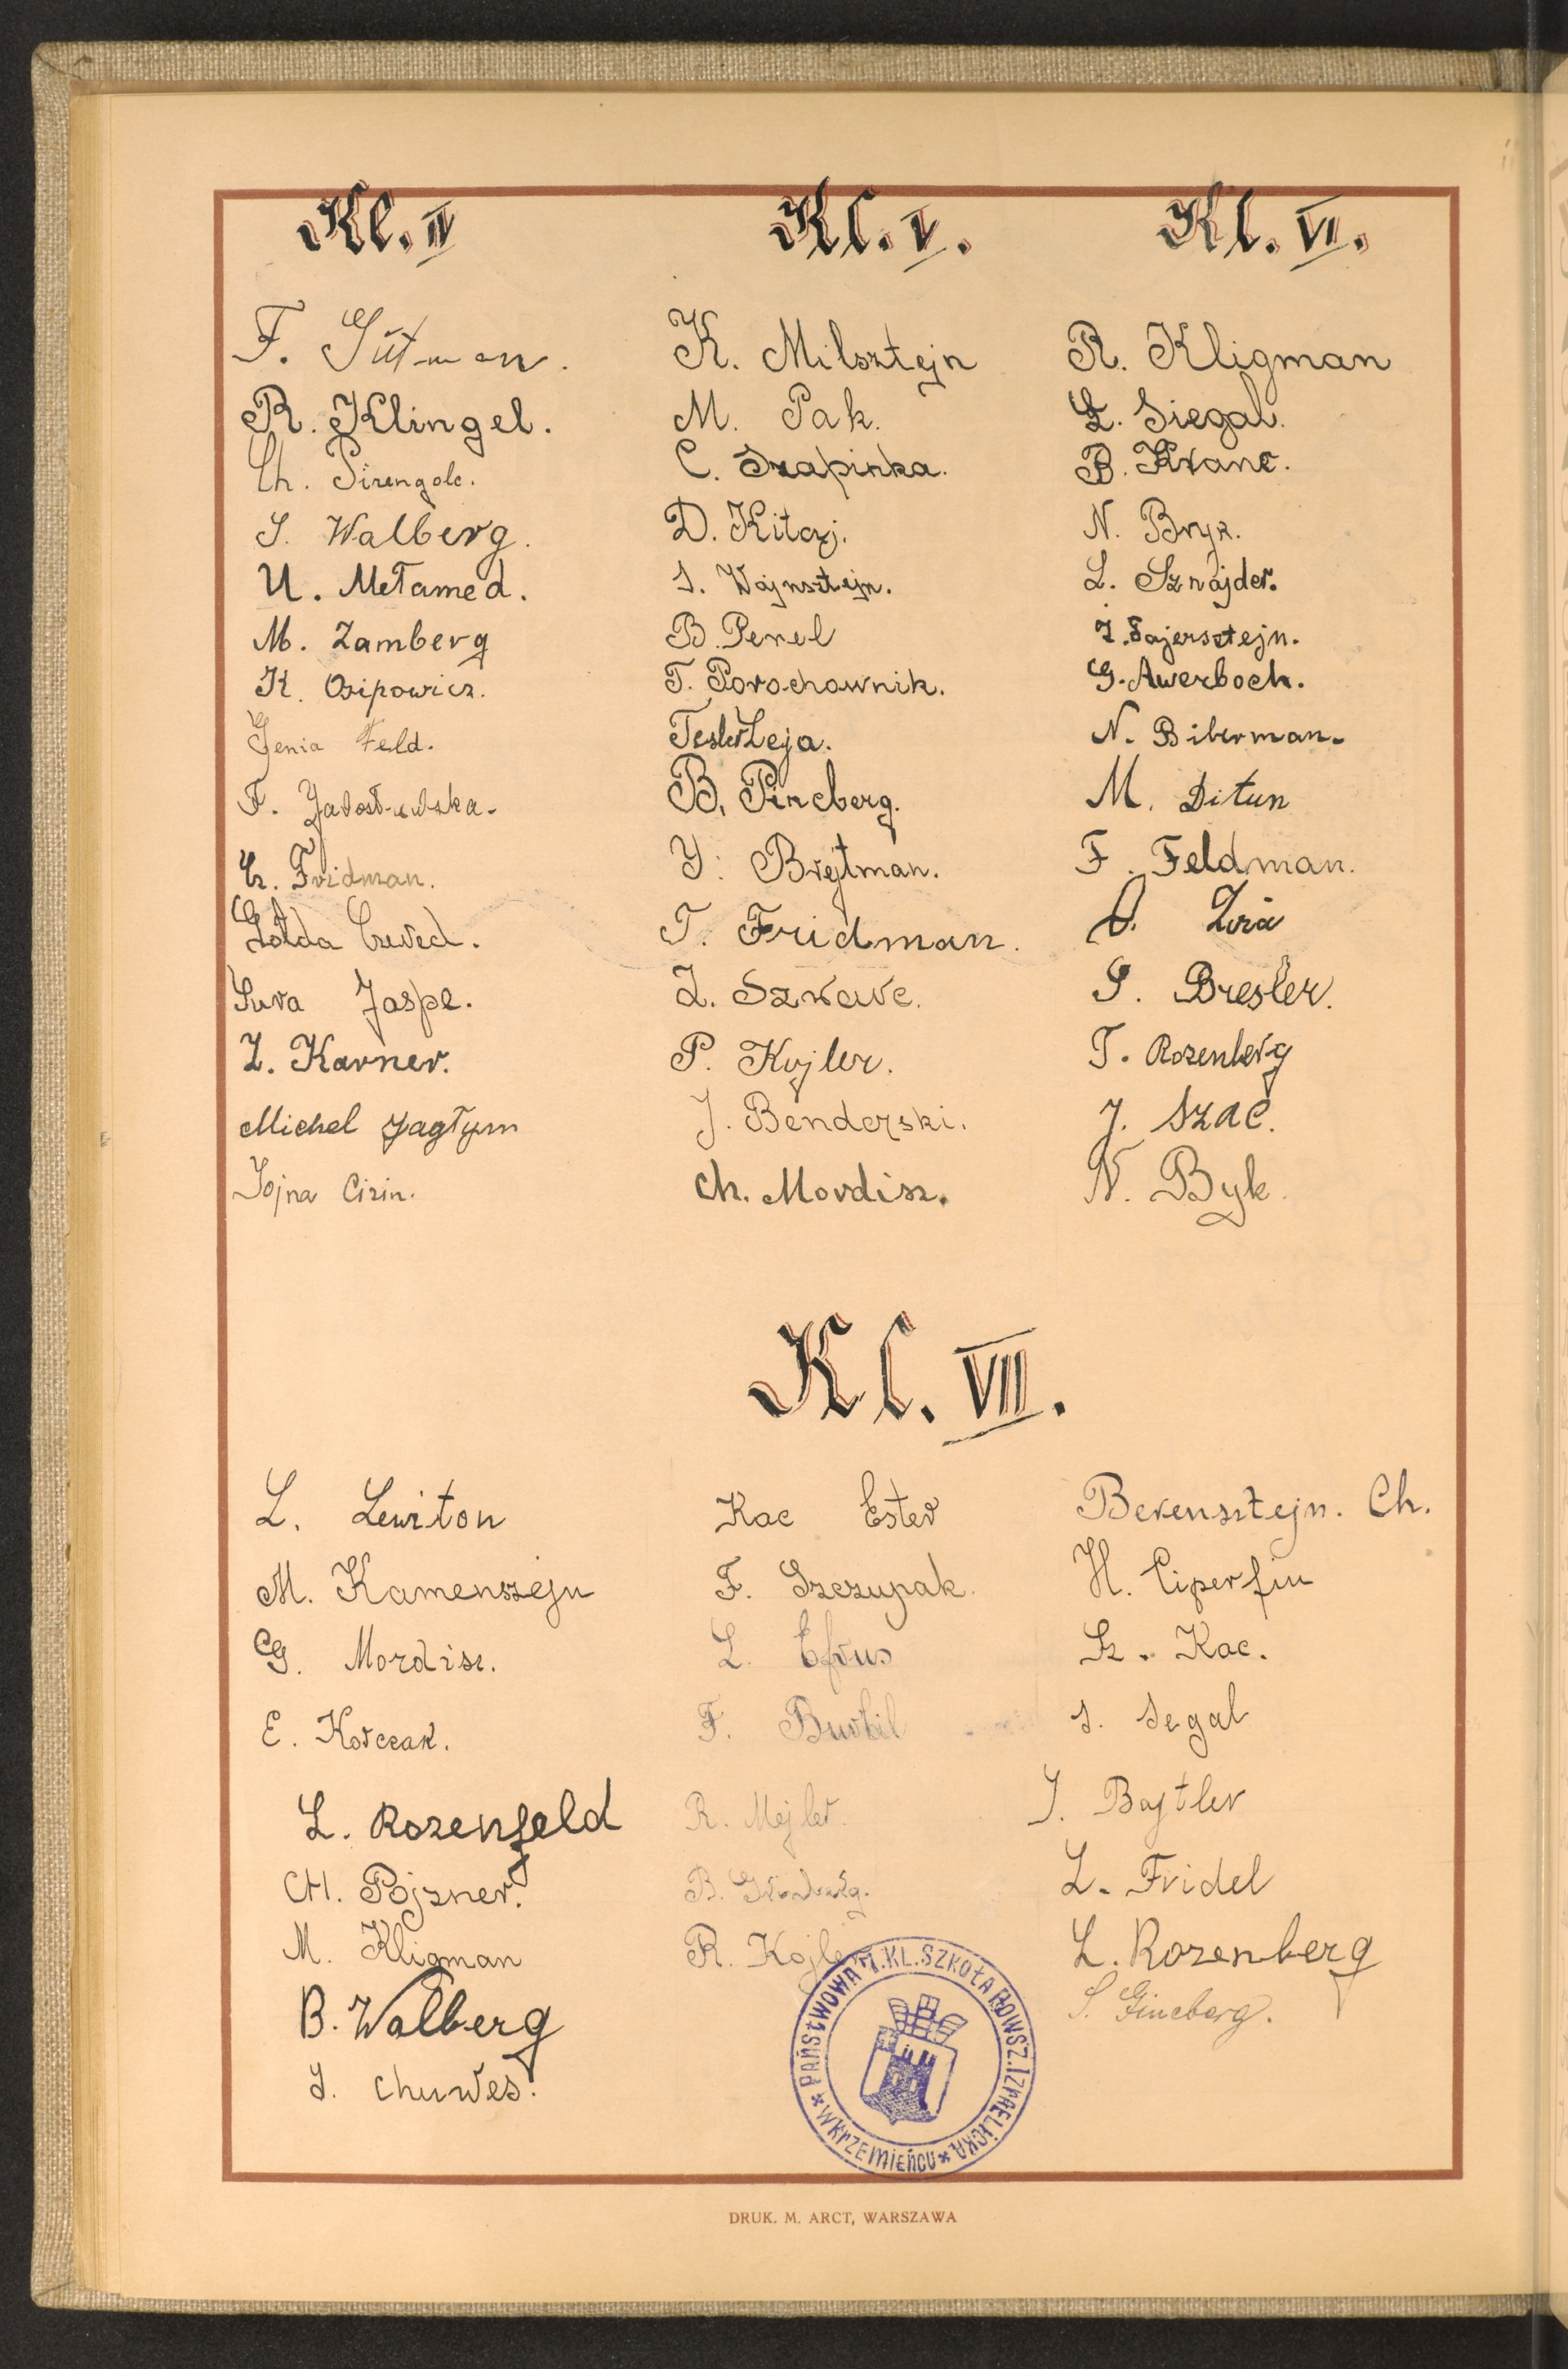 Kl. IV
F. Gutman.
R. Klingel.
Ch. Pirengolc.
S. Walberg.
U. Mełamed.
M. Zamberg
K. Osipowicz.
Genia Feld.
F.
Fridman.
Gołda Czered.
Sura Jaspe.
L. Karner.
Michel Jagłym
Sojna Cirin.
Kl. V.
K. Milsztejn
M. Pak.
C. Szapinka.
D. Kitaj.
S. Wajnsztejn.
B. Perel
T. Porochownik.
Tesler Leja.
B. Pincberg.
Y. Brejtman.
T. Fridman.
L. Szwarc.
P. Kojler.
J. Benderski.
Ch. Mordisz.
Kl. VI.
R. Kligman
L. Siegal.
B. Kranc.
N. Bryk.
L. Sznajder.
Z. Fajersztejn.
G. Awerboch.
N. Biberman.
M. Ditun
F. Feldman.
S. Bresler.
T. Rozenberg
J. Szac.
N. Byk
Kl. VII.
L. Lewiton
M. Kamenszejn
G. Mordisz.
E. Korczak.
L. Rozenfeld
CH. Pojzner.
M. Kligman
B. Walberg
J. Churwes.
Kac Ester
F. Szczupak.
L. Efrus
F. Burbil
R. Mejler.
B.
R. Kojler
Berensztejn. Ch.
H. Ciperfin
Sz. Kac.
S. Segal
J. Bajtler
L. Fridel
L. Rozenberg
S. Gincberg.
PAŃSTWOWA 7. KL. SZKOŁA POWSZ. IZRAELICKA * W KRZEMIEŃCU *
DRUK. M. ARCT, WARSZAWA